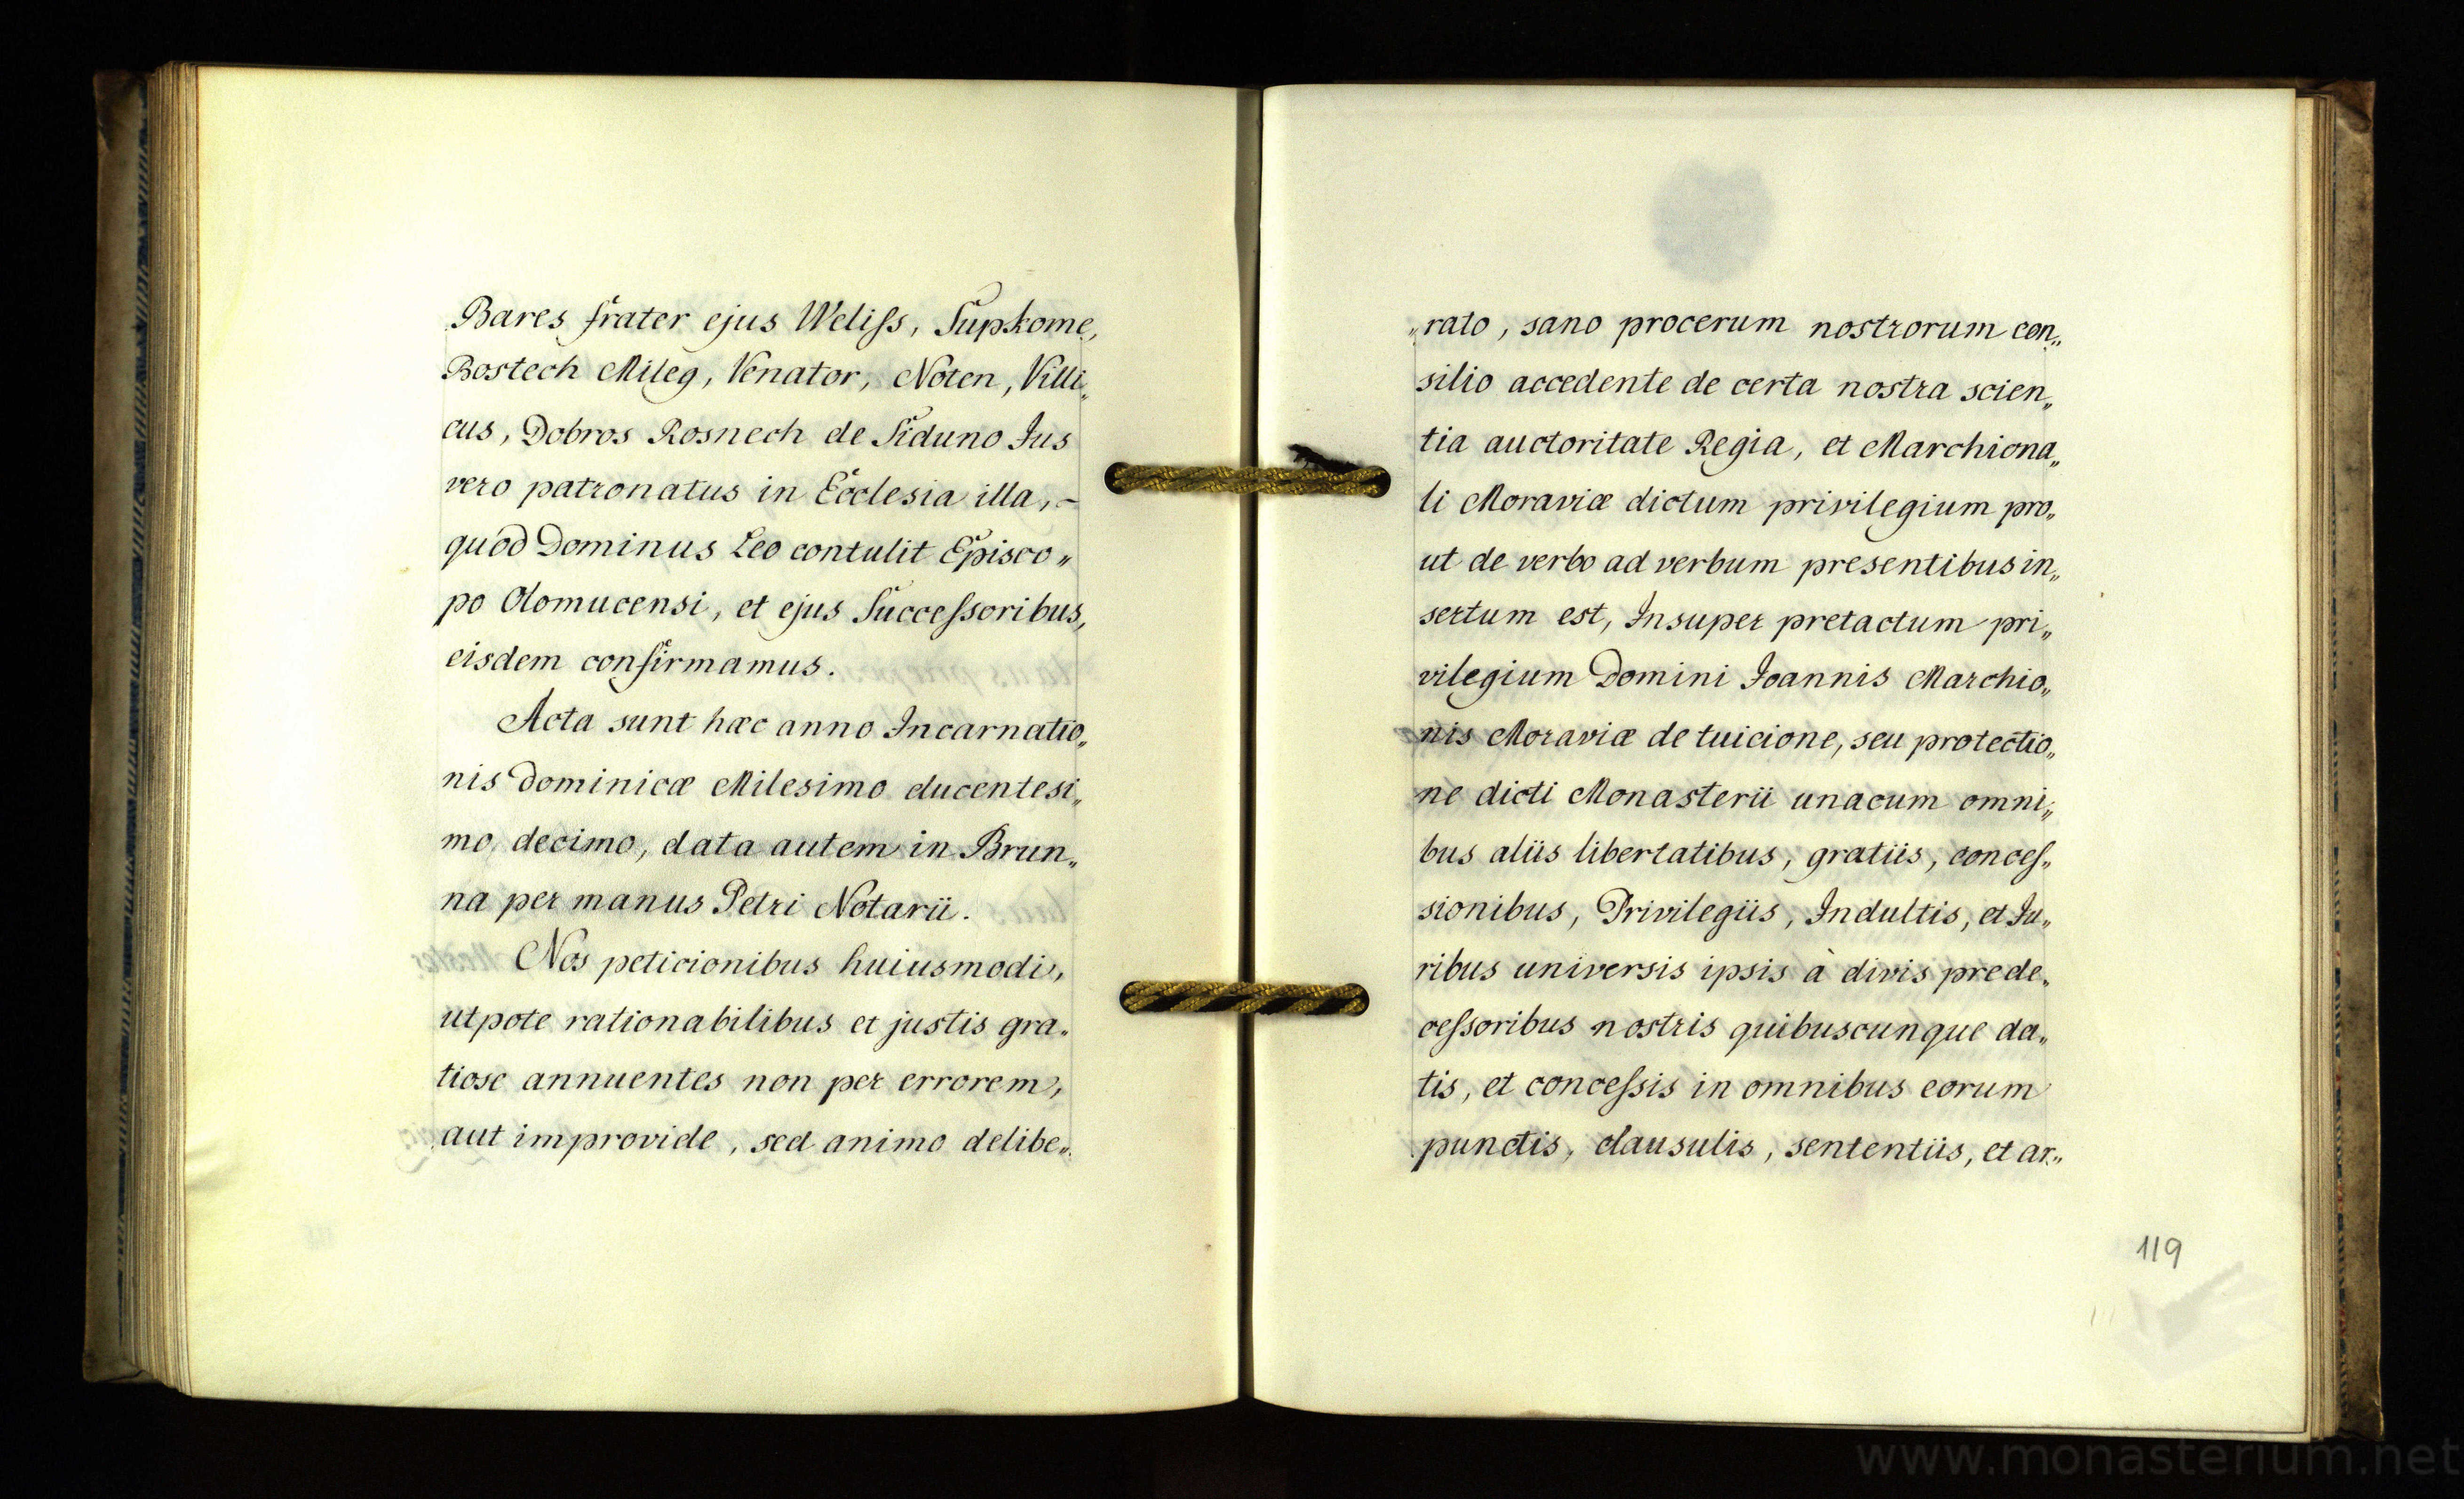 Bares frater ejus Weliſs, Supkome,
Bostech Mileg, Venator, Noten, Villi„
cus, Dobros Rosnech de Siduno Jus
vero patronatus in Ecclesia illa, -
quod Dominus Leo contulit Episco„
po Olomucensi, et ejus Succeſsoribus,
eisdem confirmamus.
Acta sunt hæc anno Incarnatio„
nis Dominicæ Milesimo ducentesi„
mo decimo, data autem in Brun„
na per manus Petri Notarii.
Nos peticionibus huiusmodi,
utpote rationabilibus et justis gra„
tiose annuentes non per errorem,
aut improvide, sed animo delibe„
„rato, sano procerum nostrorum con„
silio accedente de certa nostra scien„
tia auctoritate Regia, et Marchiona„
li Moraviæ dictum privilegium pro„
ut de verbo ad verbum presentibus in„
sertum est, Insuper pretactum pri„
vilegium Domini Joannis Marchio„
nis Moraviæ de tuicione, seu protectio„
ne dicti Monasterii unacum omni„
bus aliis libertatibus, gratiis, conceſ„
sionibus, Privilegiis, Indultis, et Ju„
ribus universis ipsis à divis prede„
ceſsoribus nostris quibuscunque da„
tis, et conceſsis in omnibus eorum
punctis, clausulis, sententiis, et ar„
119
www.monasterium.net